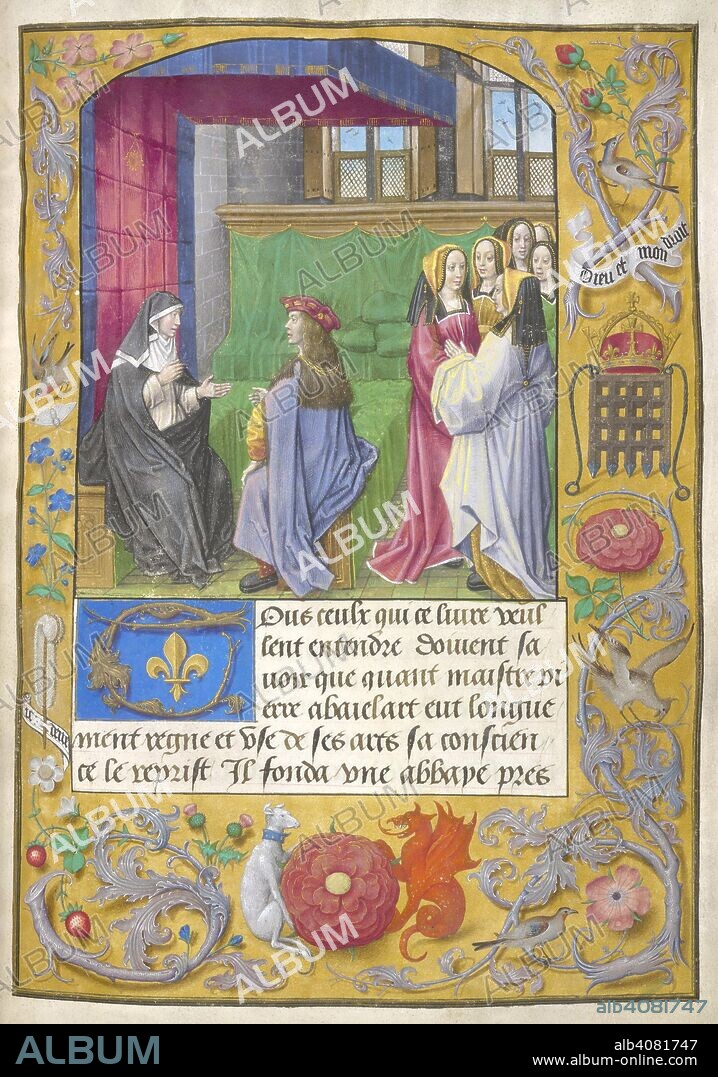 Dieu et mon droit
Ous ceulx qui ce liure veul
lent entendre doiuent sa
uoir que quant maistre pi
erre abaielart eut longue
ment regne et vse de ses arts sa conscien
ce le reprist Il fonda vne abbaye pres
ic dien
ALBUM
alb4081747
ALBUM
alb4081747
album-online.com